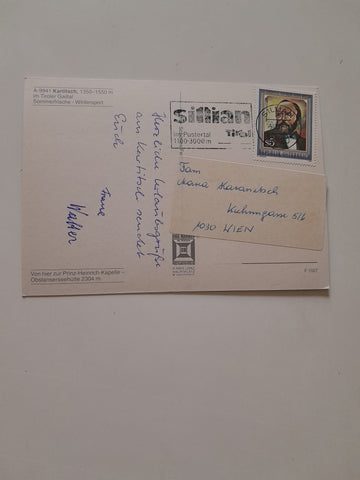 A-9941 Kartitsch, 1350-1550 m
im Tiroler Gailtal
Sommerfrische - Wintersport
Herzliche Urlaubsgrüße
aus Kartitsch sendet
Euch
Walter
Von hier zur Prinz-Heinrich-Kapelle -
Obstanserseehütte 2304 m
sillian
im Pustertal
Tirol
1100-3000 m
S5
Fam
Kuhngasse 5/6
1030 WIEN